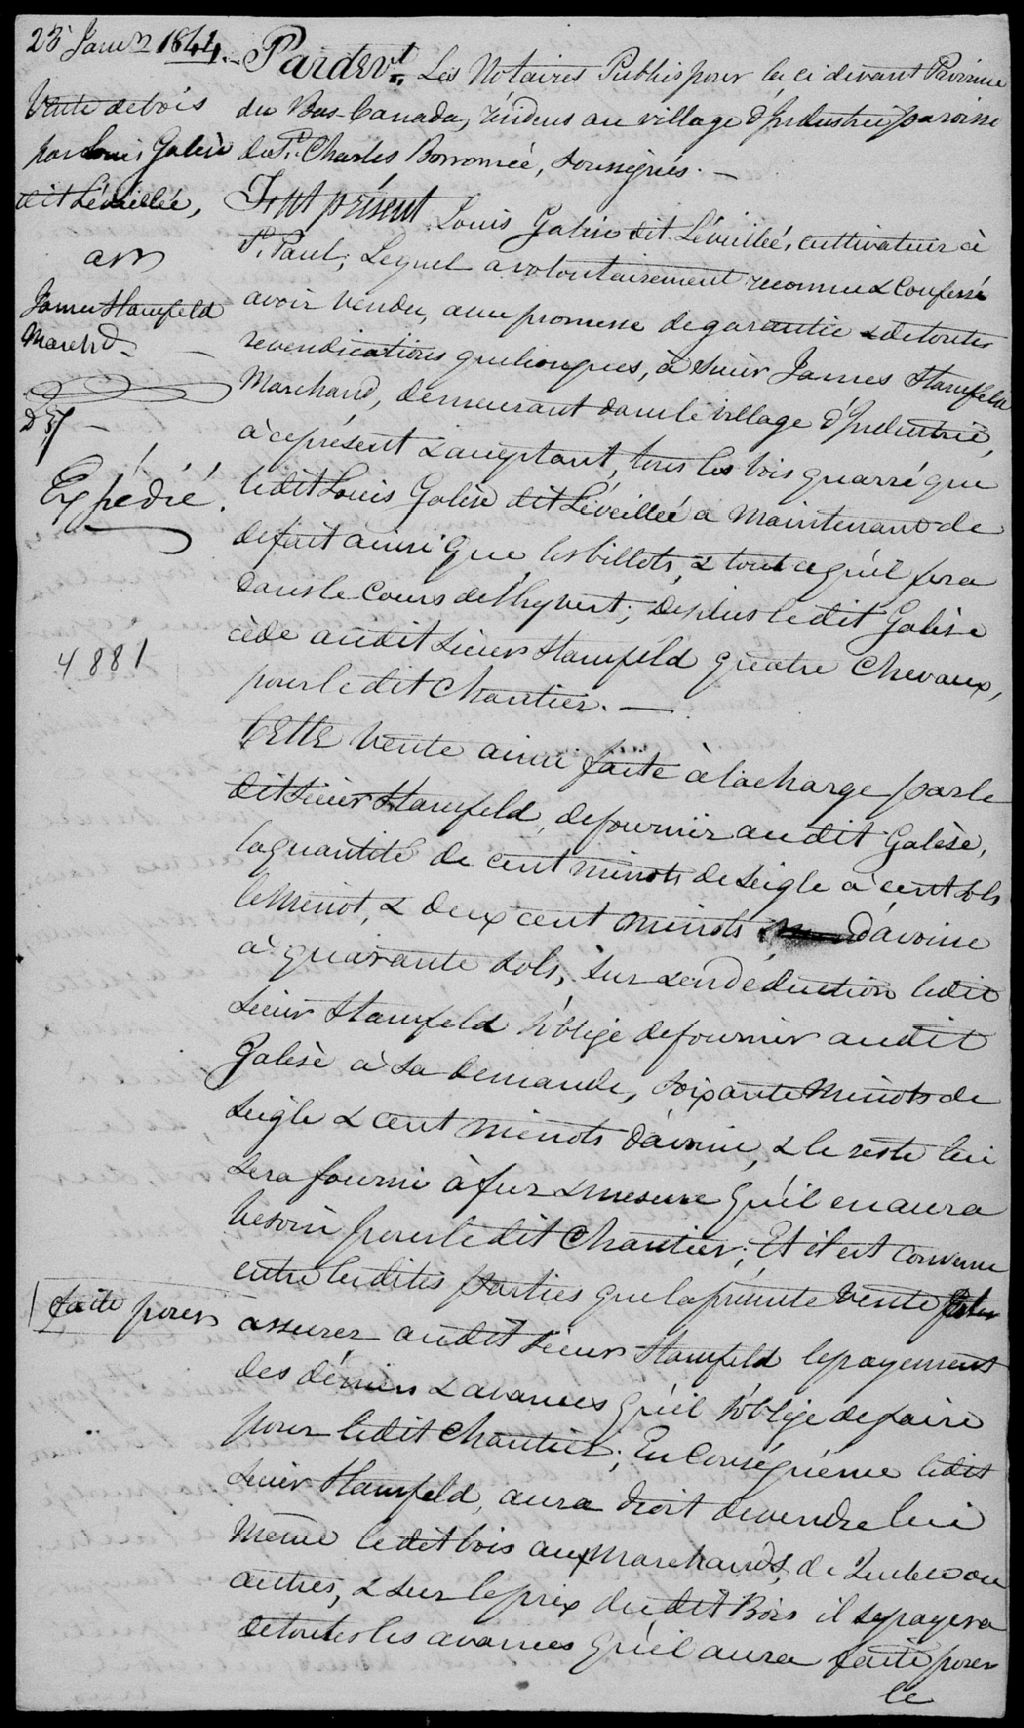 23 Janvr 1844.
Vente de bois
par Louis Galise
dit Léveillée,
à M
James Stamfeld
Marchd.
Expédié.
4881
Pardevt. Les Notaires Publics pour la ci devant Province
du Bas-Canada, résidens au village d'Industrie paroisse
de St. Charles Borromée, soussignés. —
Fut présent Louis Galise dit Léveillée, cultivateur à
St. Paul; Lequel a volontairement reconnu & confessé
avoir vendu, avec promesse de garantie & de toutes
revendications quelconques, à Sieur James Stamfeld
Marchand, demeurant dans le village d'Industrie,
à ce présent & acceptant, tous les bois quarré que
ledit Louis Galise dit Léveillée a maintenant de
de fait ainsi que les billots, & tout ce qu'il fera
dans le cours de l'hyvert; De plus ledit Galise
cède audit Sieur Stamfeld quatre chevaux,
pour ledit Chantier. —
Cette vente ainsi faite à la charge par le
dit Sieur Stamfeld, de fournir audit Galise,
la quantité de cent minots de seigle à cent sols
le minot, & deux cent minots d'avoine
à quarante sols, sur & en déduction ledit
Sieur Stamfeld s'oblige de fournir audit
Galise à sa demande, soixante minots de
seigle & cent minots d'avoine, & le reste lui
sera fourni à fur & mesure qu'il en aura
besoin pour ledit Chantier; Et il est convenu
entre lesdites parties que la présente vente
faite pour
assurer audit Sieur Stamfeld le payement
des déniers & avances qu'il s'oblige de faire
pour ledit Chantier; En Conséquence ledit
Sieur Stamfeld, aura droit de vendre lui
même ledit bois aux Marchands de Québec ou
autres, & sur le prix dudit Bois il se payera
de toutes les avances qu'il aura faite pour
le